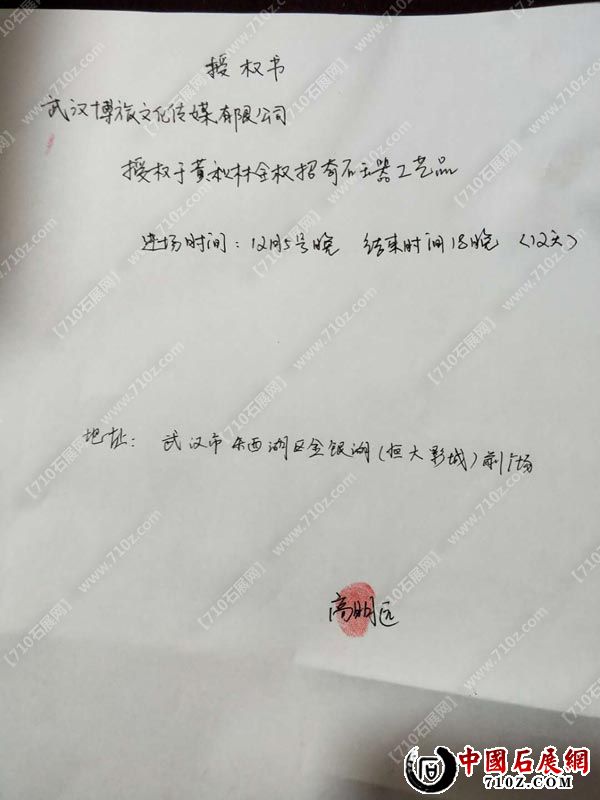 授权书
武汉博旅文化传媒有限公司
授权于黄秋林全权招奇石玉器工艺品
进场时间：12月5号晚 结束时间18晚（12天）
地址：武汉市东西湖区金银湖(恒大影城)前广场
高明远
中國石展網
710Z.COM
【710石展网】
www.710z.com